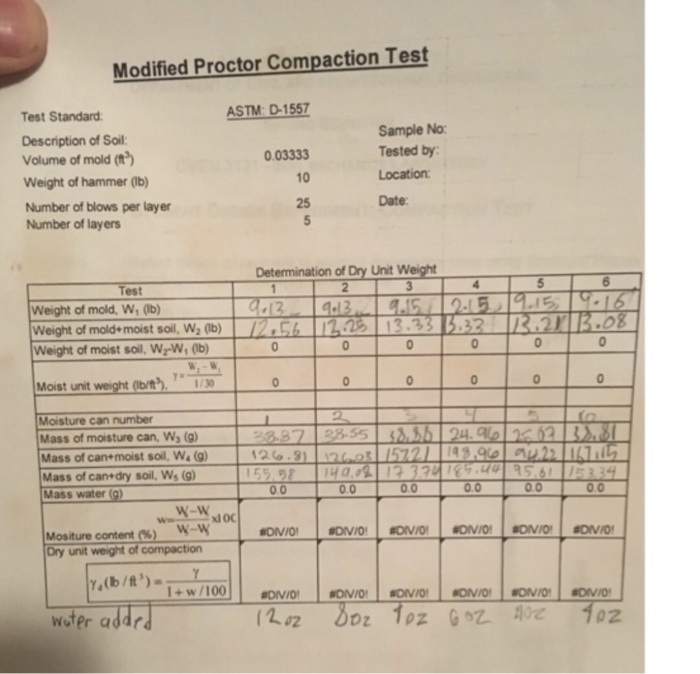 Modified Proctor Compaction Test
Test Standard: ASTM: D-1557
Description of Soil: Sample No:
Volume of mold (ft³) 0.03333 Tested by:
Weight of hammer (lb) 10 Location:
Number of blows per layer 25 Date:
Number of layers 5
Determination of Dry Unit Weight
Test 1 2 3 4 5 6
Weight of mold, W₁ (lb) 9.13 9.13 9.15 2.15 9.15 9.16
Weight of mold+moist soil, W₂ (lb) 12.56 13.33 13.33 13.08
Weight of moist soil, W₂-W₁ (lb) 0 0 0 0 0 0
Moist unit weight (lb/ft³), γ = W₂ - W₁ / 1/30 0 0 0 0 0 0
Moisture can number 1 2 3 4 5
Mass of moisture can, W₃ (g) 38.55 24.96 38.81
Mass of can+moist soil, W₄ (g) 126.81 126.03 198.96 94.22 167.15
Mass of can+dry soil, W₅ (g) 155.98 95.61 153.39
Mass water (g) 0.0 0.0 0.0 0.0 0.0 0.0
Mositure content (%) w= W-W / W-W x10C #DIV/0! #DIV/0! #DIV/0! #DIV/0! #DIV/0! #DIV/0!
Dry unit weight of compaction
γd (lb / ft³) = γ / 1 + w /100 #DIV/0! #DIV/0! #DIV/0! #DIV/0! #DIV/0! #DIV/0!
water added 12oz 8oz 6oz 4oz